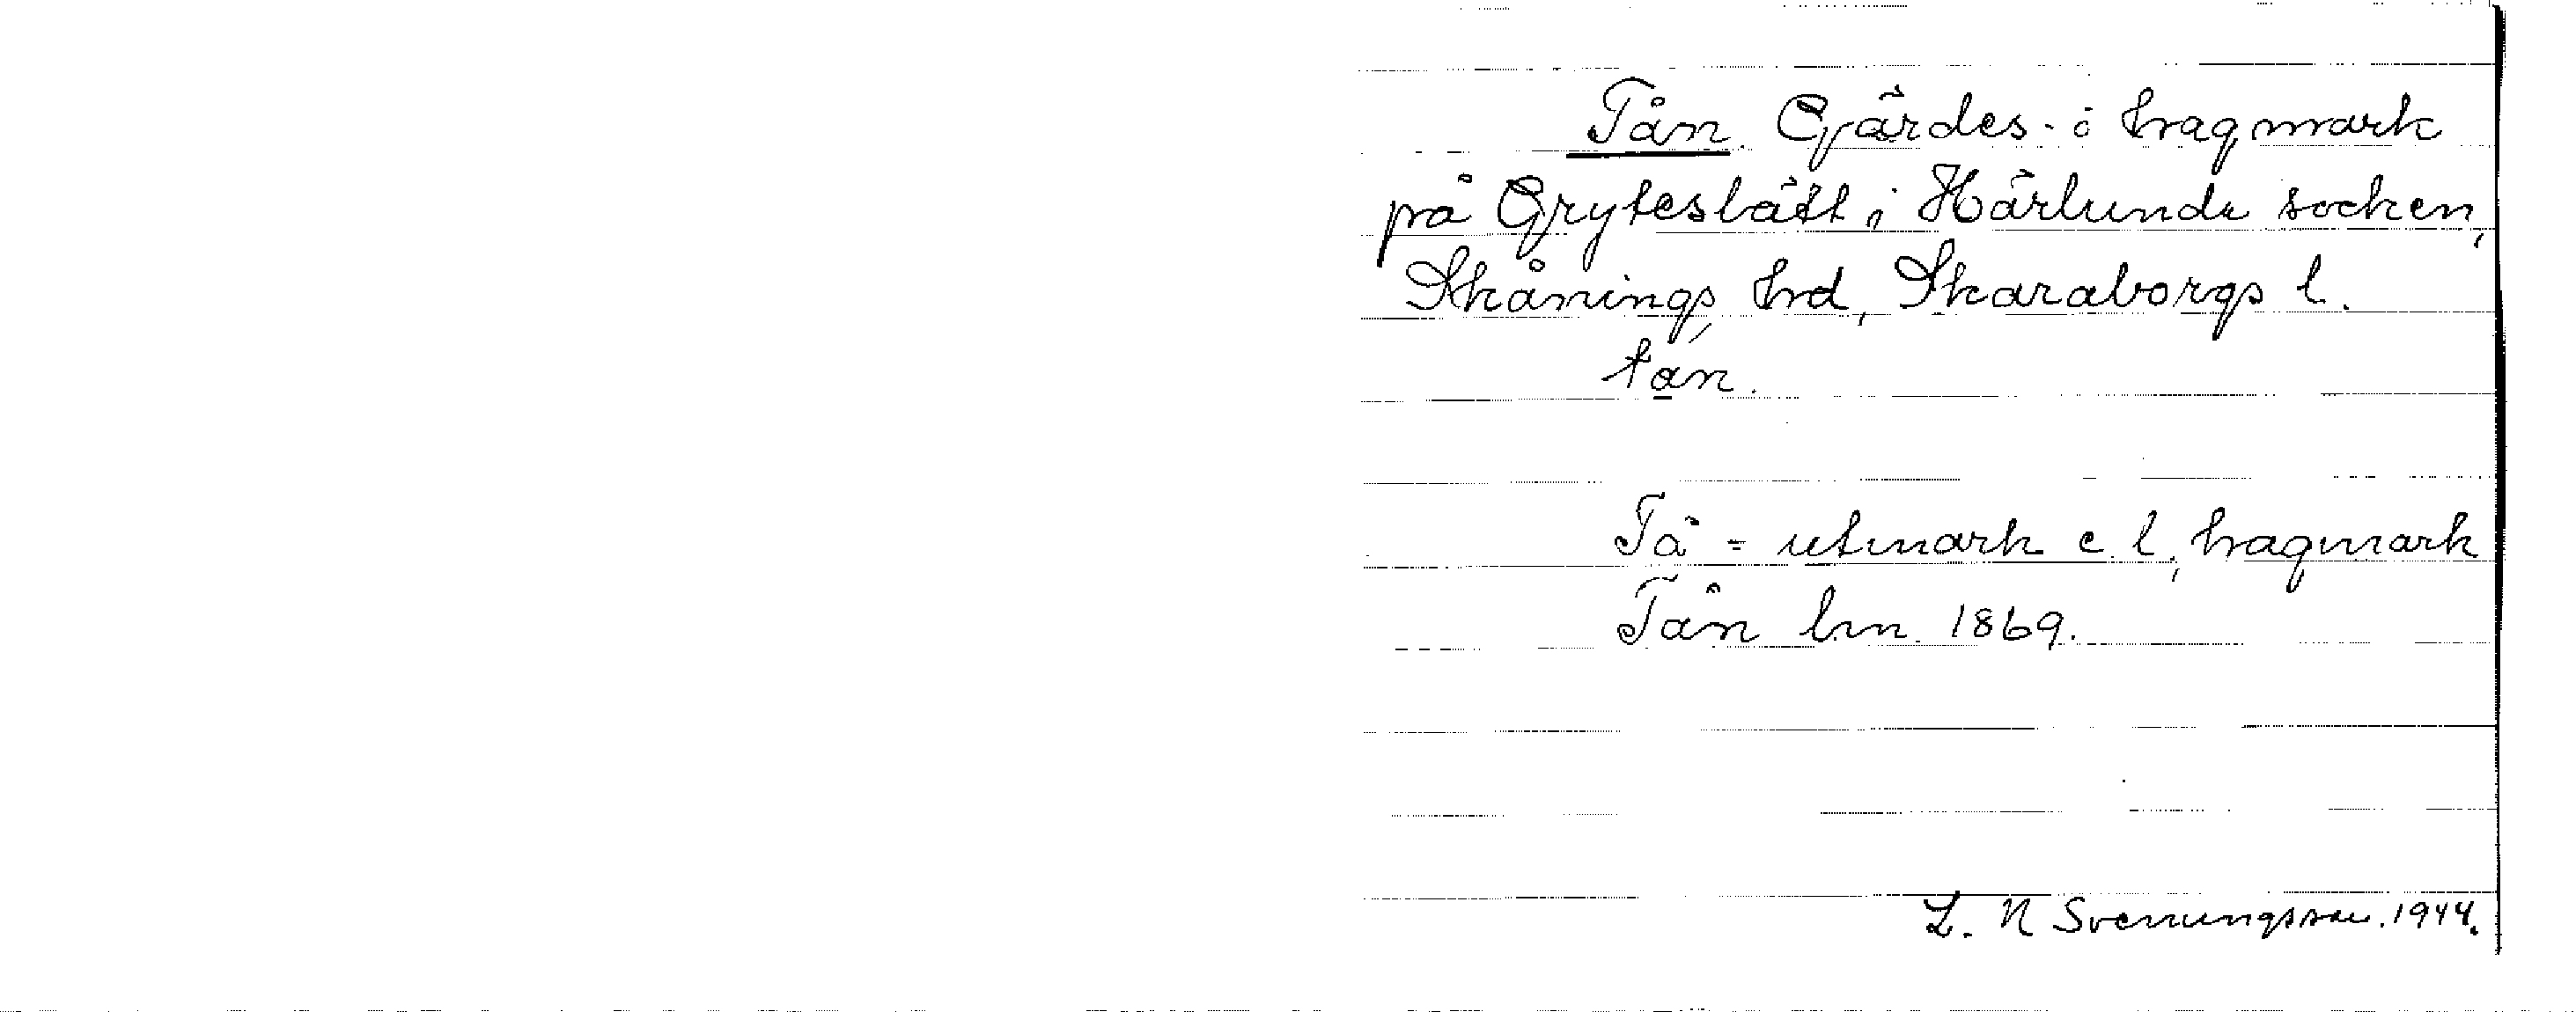 Tån. Gjärdes- o hagmark
på Gryteslätt i Härlunda socken,
Skånings hd, Skaraborgs l.
tan.
Tå = utmark e. l., hagmark
Tån hm. 1869.
L. N Svenungsson. 1944.